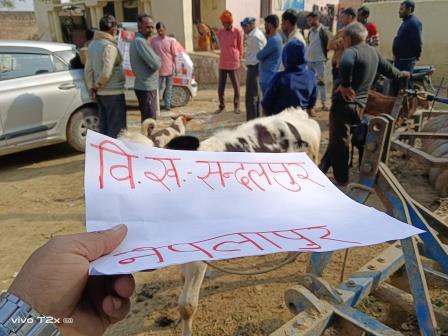 वि. ख. - सन्दलपुर
नैपलापुर
vivo T2x